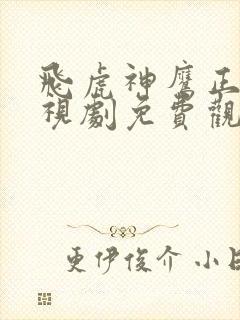 飛虎神鷹正
視劇免費觀
更伊俊介 小